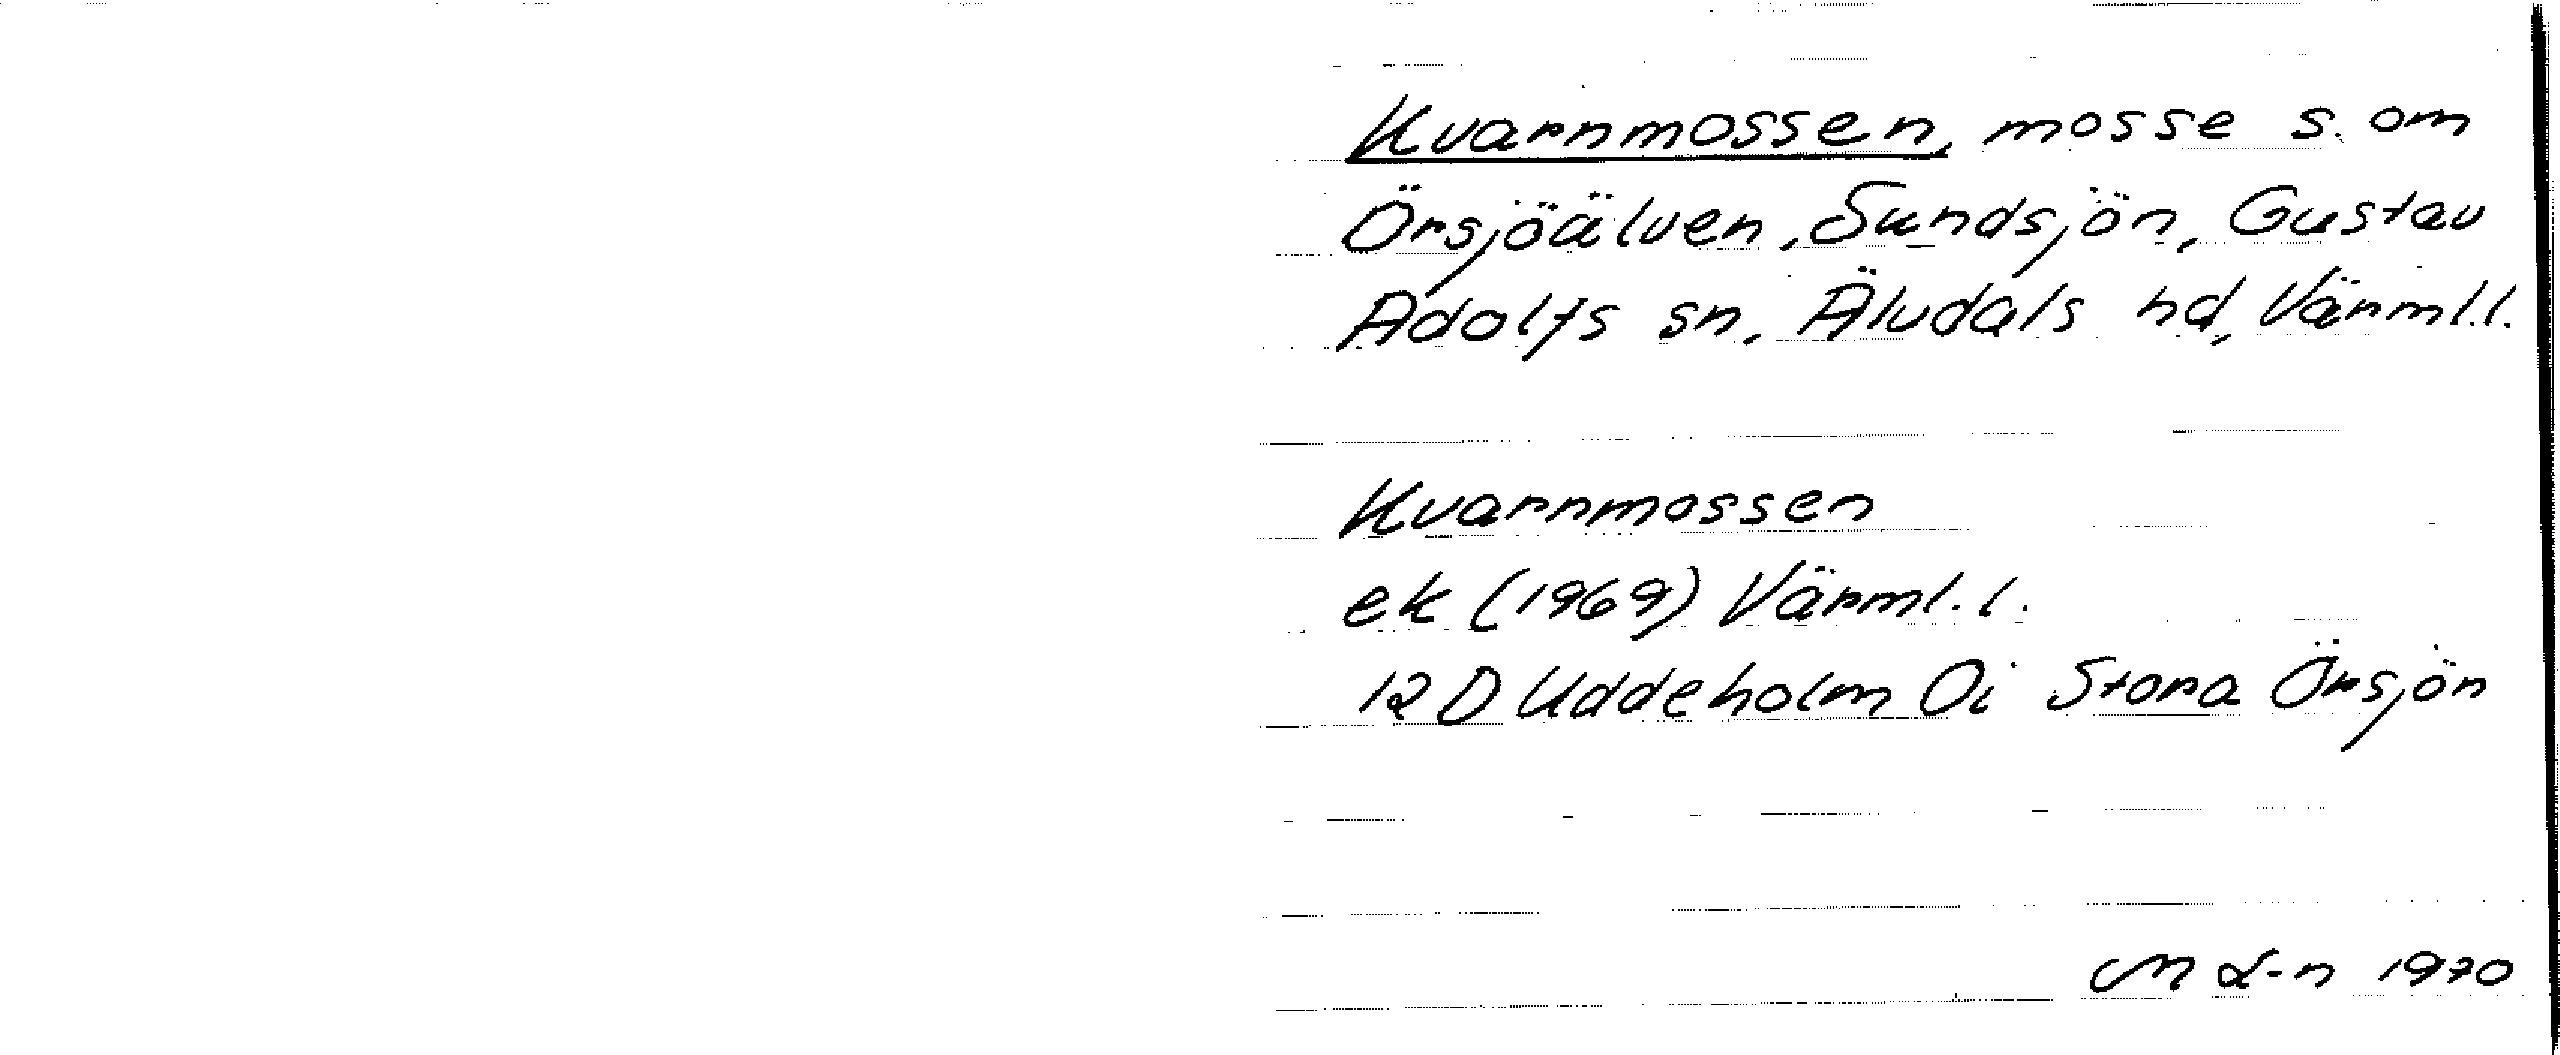 Kvarnmossen, mosse s. om
Örsjöälven, Sundsjön, Gustav
Adolfs sn, Älvdals hd, Värml.l.
Kvarnmossen
ek (1969) Värml.l.
12 D Uddeholm 0i Stora Örsjön
M L-n 1970